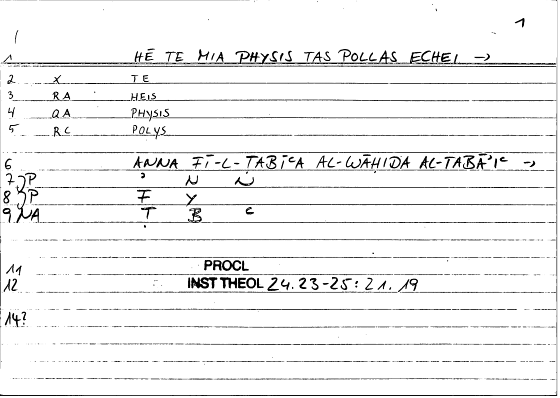 1
1 HĒ TE MIA PHYSIS TAS POLLAS ECHEI →
2 X TE
3 RA HEIS
4 QA PHYSIS
5 RC POLYS
6 ANNA FĪ-L-ṬABĪᶜA AL-WĀḤIDA AL-ṬABĀ'Iᶜ →
7 JP ' N N
8 JP F Y
9 NA Ṭ B ᶜ
11 PROCL
12 INST THEOL 24.23-25: 21.19
14?